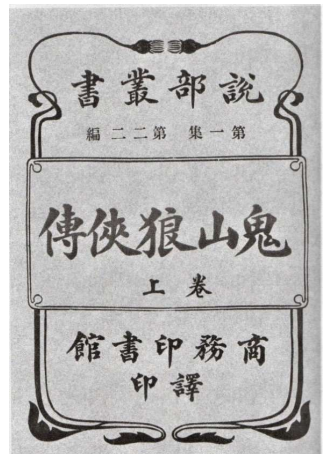 說部叢書
第一集 第二二編
鬼山狼俠傳
卷上
商務印書館
譯印